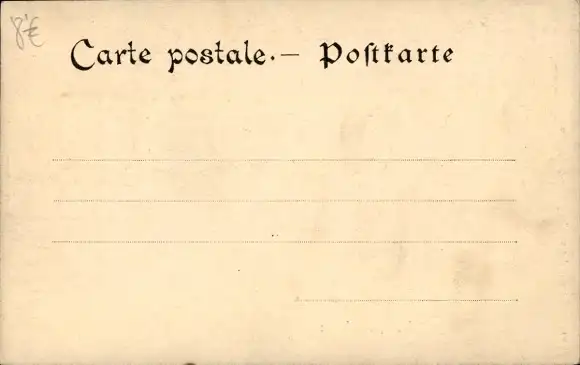 8 €
Carte postale.— Poſtkarte